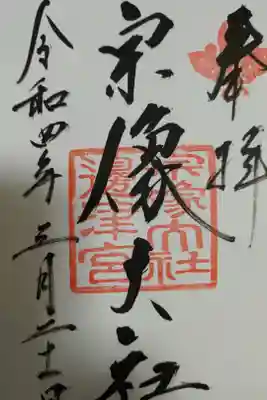 奉拝
宗像大社
宗像大社
邊津宮
令和四年三月二十一日